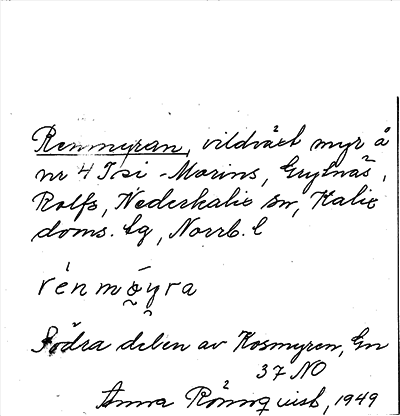 Renmyran, vildväxt myr å
nr 4 Isi-Morins, Grytnäs,
Rolfs, Nederkalix sn, Kalix
doms. lg, Norrb. l
rénmo̰ýra
Södra delen av Kosmyren, Gn
37 NO
Anna Rönnqvist, 1949